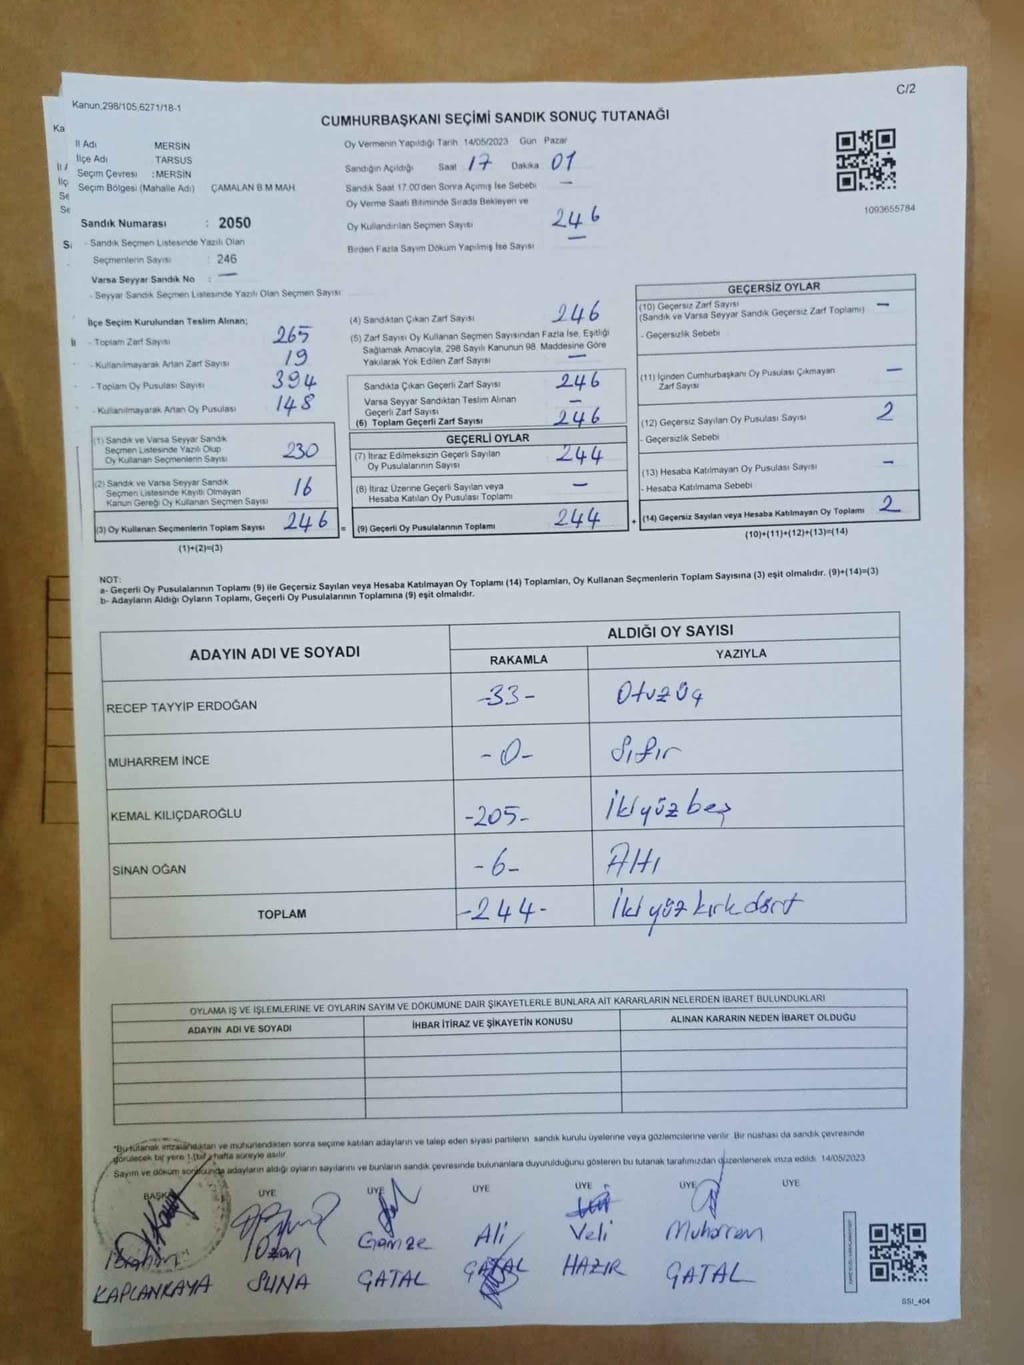 C/2
Kanun,298/105,6271/18-1
CUMHURBAŞKANI SEÇİMİ SANDIK SONUÇ TUTANAĞI
İl Adı MERSİN
İlçe Adı TARSUS
Seçim Çevresi : MERSİN
Seçim Bölgesi (Mahalle Adı) ÇAMALAN B.M MAH.
Sandık Numarası : 2050
- Sandık Seçmen Listesinde Yazılı Olan
Seçmenlerin Sayısı : 246
Varsa Seyyar Sandık No : —
- Seyyar Sandık Seçmen Listesinde Yazılı Olan Seçmen Sayısı
Oy Vermenin Yapıldığı Tarih 14/05/2023 Gün Pazar
Sandığın Açıldığı Saat 17 Dakika 01
Sandık Saat 17.00'den Sonra Açımış İse Sebebi —
Oy Verme Saati Bitiminde Sırada Bekleyen ve
Oy Kullandırılan Seçmen Sayısı 246
Birden Fazla Sayım Döküm Yapılmış İse Sayısı —
1093655784
İlçe Seçim Kurulundan Teslim Alınan;
- Toplam Zarf Sayısı 265
- Kullanılmayarak Artan Zarf Sayısı 19
- Toplam Oy Pusulası Sayısı 394
- Kullanılmayarak Artan Oy Pusulası 148
(1) Sandık ve Varsa Seyyar Sandık
Seçmen Listesinde Yazılı Olup
Oy Kullanan Seçmenlerin Sayısı 230
(2) Sandık ve Varsa Seyyar Sandık
Seçmen Listesinde Kayıtlı Olmayan
Kanun Gereği Oy Kullanan Seçmen Sayısı 16
(3) Oy Kullanan Seçmenlerin Toplam Sayısı 246 =
(1)+(2)=(3)
(4) Sandıktan Çıkan Zarf Sayısı 246
(5) Zarf Sayısı Oy Kullanan Seçmen Sayısından Fazla İse, Eşitliği
Sağlamak Amacıyla, 298 Sayılı Kanunun 98. Maddesine Göre
Yakılarak Yok Edilen Zarf Sayısı —
Sandıkta Çıkan Geçerli Zarf Sayısı 246
Varsa Seyyar Sandıktan Teslim Alınan
Geçerli Zarf Sayısı —
(6) Toplam Geçerli Zarf Sayısı 246
GEÇERLİ OYLAR
(7) İtiraz Edilmeksizin Geçerli Sayılan
Oy Pusulalarının Sayısı 244
(8) İtiraz Üzerine Geçerli Sayılan veya
Hesaba Katılan Oy Pusulası Toplamı —
(9) Geçerli Oy Pusulalarının Toplamı 244 +
GEÇERSİZ OYLAR
(10) Geçersiz Zarf Sayısı —
(Sandık ve Varsa Seyyar Sandık Geçersiz Zarf Toplamı)
- Geçersizlik Sebebi
(11) İçinden Cumhurbaşkanı Oy Pusulası Çıkmayan
Zarf Sayısı —
(12) Geçersiz Sayılan Oy Pusulası Sayısı 2
- Geçersizlik Sebebi
(13) Hesaba Katılmayan Oy Pusulası Sayısı —
- Hesaba Katılmama Sebebi
(14) Geçersiz Sayılan veya Hesaba Katılmayan Oy Toplamı 2
(10)+(11)+(12)+(13)=(14)
NOT:
a- Geçerli Oy Pusulalarının Toplamı (9) ile Geçersiz Sayılan veya Hesaba Katılmayan Oy Toplamı (14) Toplamları, Oy Kullanan Seçmenlerin Toplam Sayısına (3) eşit olmalıdır. (9)+(14)=(3)
b- Adayların Aldığı Oyların Toplamı, Geçerli Oy Pusulalarının Toplamına (9) eşit olmalıdır.
ADAYIN ADI VE SOYADI ALDIĞI OY SAYISI
RAKAMLA YAZIYLA
RECEP TAYYİP ERDOĞAN -33- Otuzüç
MUHARREM İNCE -0- Sıfır
KEMAL KILIÇDAROĞLU -205- İkiyüzbeş
SİNAN OĞAN -6- Altı
TOPLAM -244- İkiyüzkırkdört
OYLAMA İŞ VE İŞLEMLERİNE VE OYLARIN SAYIM VE DÖKÜMÜNE DAİR ŞİKAYETLERLE BUNLARA AİT KARARLARIN NELERDEN İBARET BULUNDUKLARI
ADAYIN ADI VE SOYADI İHBAR İTİRAZ VE ŞİKAYETİN KONUSU ALINAN KARARIN NEDEN İBARET OLDUĞU
*Bu tutanak imzalandıktan ve mühürlendikten sonra seçime katılan adayların ve talep eden siyasi partilerin sandık kurulu üyelerine veya gözlemcilerine verilir. Bir nüshası da sandık çevresinde
görülecek bir yere 1 (bir) hafta süreyle asılır.
Sayım ve döküm sonucunda adayların aldığı oyların sayılarını ve bunların sandık çevresinde bulunanlara duyurulduğunu gösteren bu tutanak tarafımızdan düzenlenerek imza edildi. 14/05/2023
BAŞKAN ÜYE ÜYE ÜYE ÜYE ÜYE ÜYE
İbrahim Ozan Gamze Ali Veli Muharrem
KAPLANKAYA SUNA GATAL GATAL HAZIR GATAL
SSI_404